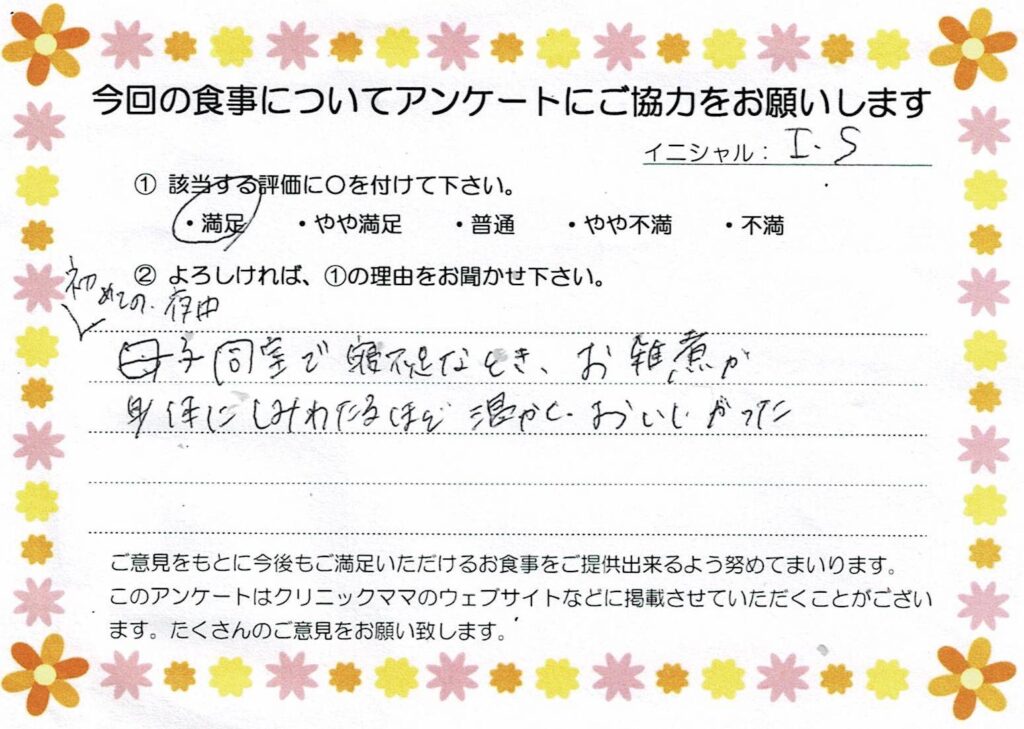 今回の食事についてアンケートにご協力をお願いします
イニシャル： I.S
① 該当する評価に〇を付けて下さい。
・満足 ・やや満足 ・普通 ・やや不満 ・不満
② よろしければ、①の理由をお聞かせ下さい。
初めての、夜中
母子同室で寝不足なとき、お雑煮が
身体にしみわたるほど温かく、おいしかった
ご意見をもとに今後もご満足いただけるお食事をご提供出来るよう努めてまいります。
このアンケートはクリニックママのウェブサイトなどに掲載させていただくことがござい
ます。たくさんのご意見をお願い致します。